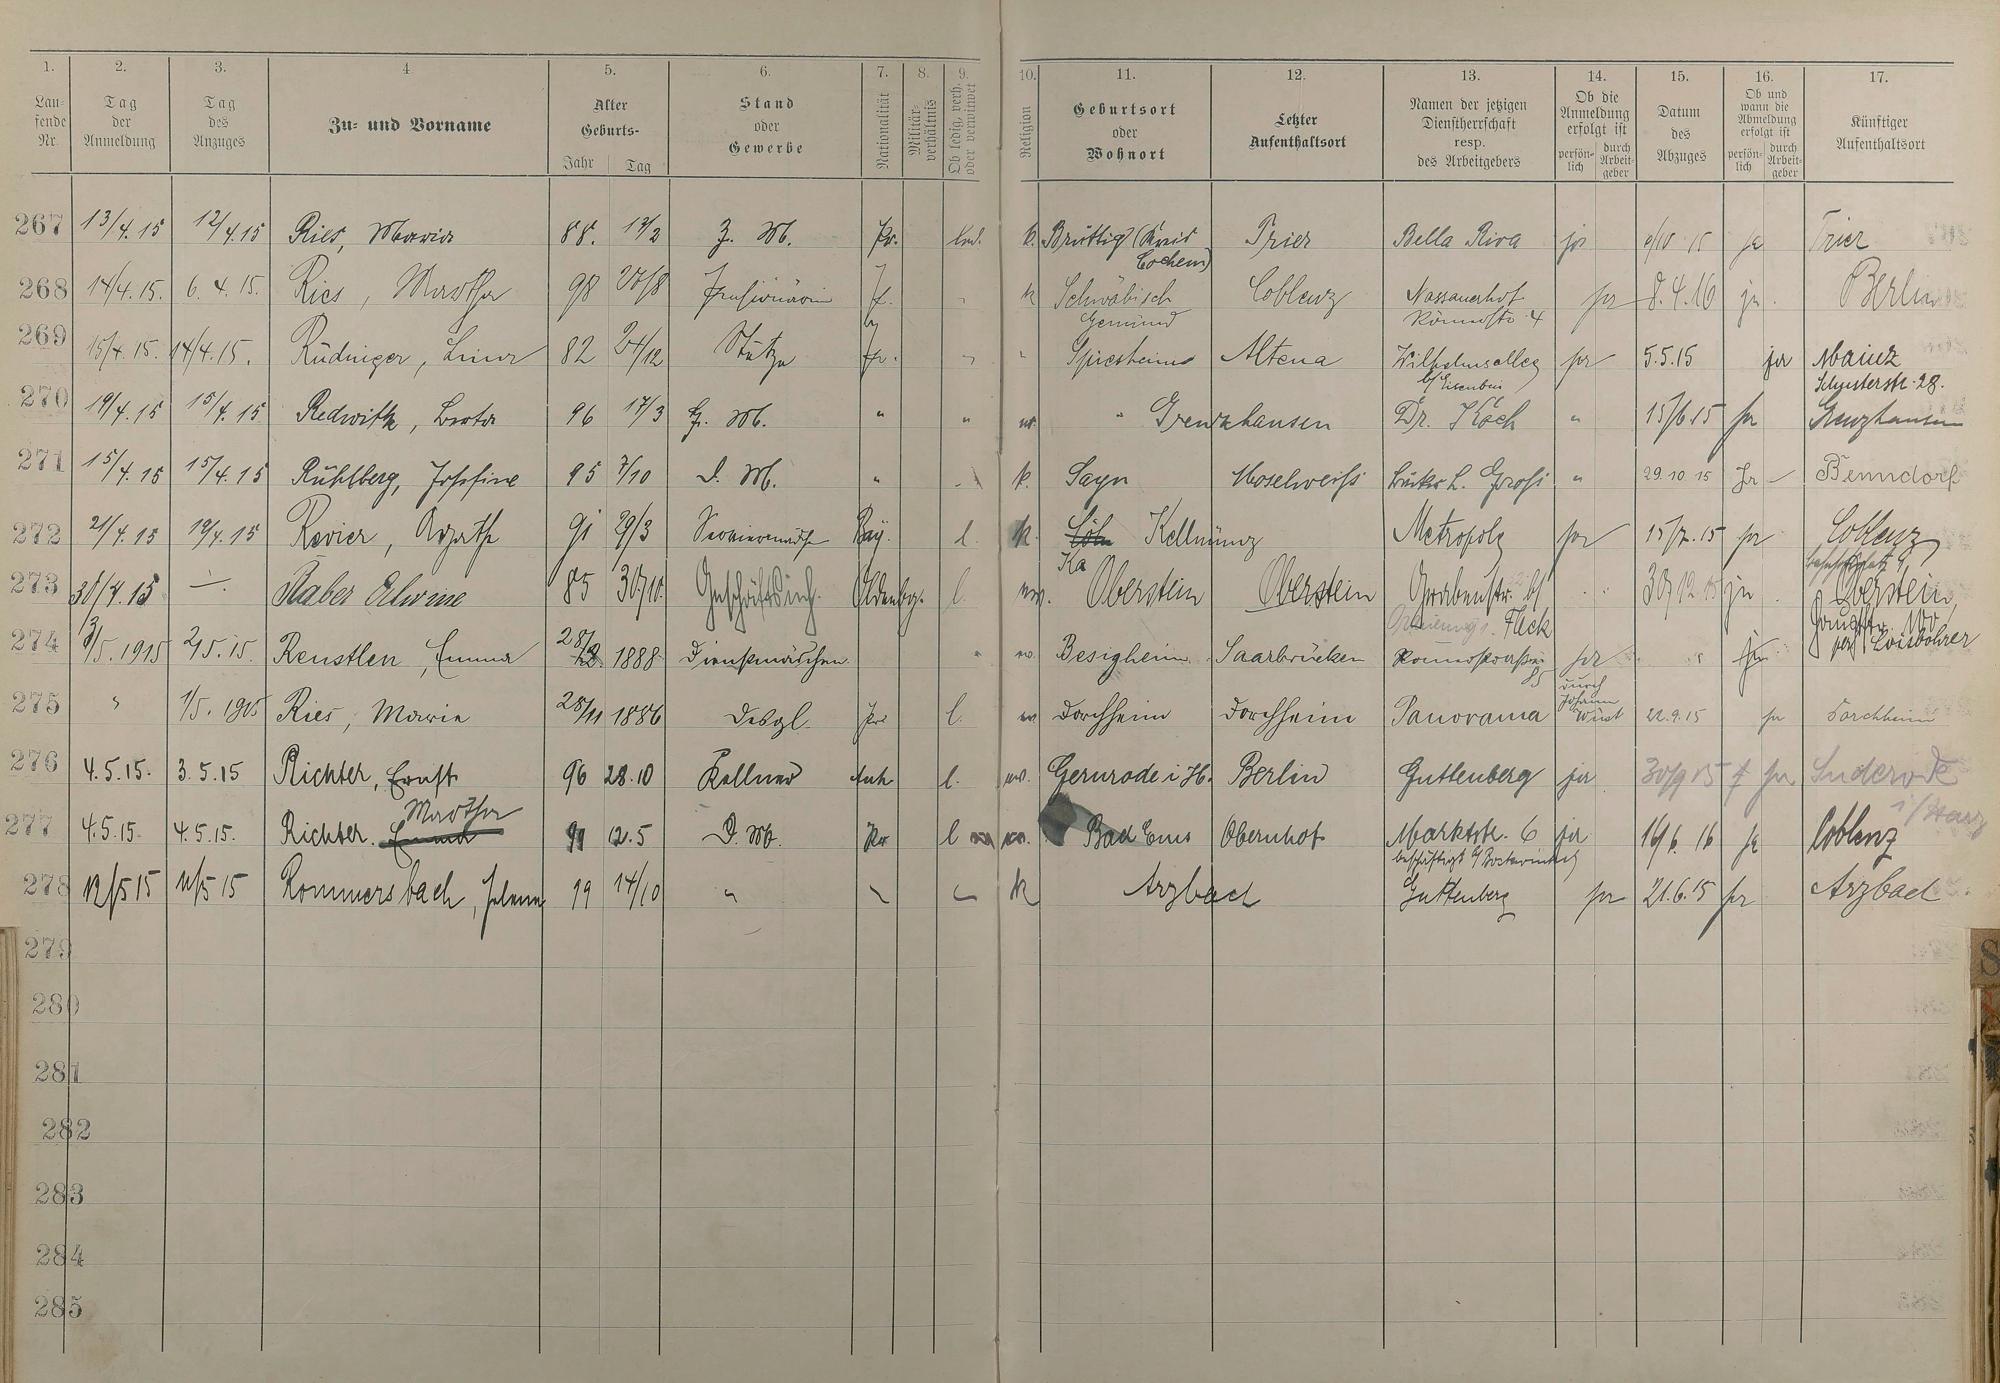 1. 2. 3. 4 5. 6. 7. 8. 9. 10. 11. 12. 13. 14. 15. 16. 17.
Lau-
fende
Nr.
Tag
der
Anmeldung
Tag
des
Anzuges
Zu- und Vorname
Alter
Geburts-
Jahr Tag
Stand
oder
Gewerbe
Nationalität
Militär-
verhältnis
Ob ledig, verh.
oder verwitwet
Religion
Geburtsort
oder
Wohnort
Letzter
Aufenthaltsort
Namen der jetzigen
Dienstherrschaft
resp.
des Arbeitgebers
Ob die
Anmeldung
erfolgt ist
persön-
lich
durch
Arbeit-
geber
Datum
des
Abzuges
Ob und
wann die
Abmeldung
erfolgt ist
persön-
lich
durch
Arbeit-
geber
Künftiger
Aufenthaltsort
267 13/4.15 12/4.15 Ries, Maria 88. 13/2 Z. M. Pr. led. k. Bruttig (Kreis Trier Bella Riva ja 15 ja Trier
Cochem)
268 14/4.15. 6.4.15. Ries, Martha 98 20/8 k Schwäbisch Coblenz Nassauerhof ja 8.4.16 ja. Berlin
Gemünd Römerstr. 4
269 15/4.15. 14/4.15. Rüdinger, 82 24/12 Stütze " Spiesheim Altena Wilhelmsallee ja 5.5.15 ja Mainz
b/ Schusterstr. 28.
270 19/4.15 15/4.15 Redwitk, Berta 96 17/3 H. M. " " ev. " Grenzhausen Dr. Koch " 15/6.15 ja Grenzhausen
271 15/4.15 15/4.15 Rühlberg, Josefine 95 7/10 D. M. " k. Sayn Moselweiß L. Groß " 29.10.15 Ja Benndorf
272 21/4.15 19/4.15 Revier, Agathe 91 29/3 Serviermädch Bay. l. k. Kellmünz Metropole ja 15/7.15 ja Coblenz
Ka
273 30/4.15 Raber Elwine 85 30/10. Oldenbg. l. ev. Oberstein Oberstein Grabenstr. b/ 30/12.15 ja Oberstein,
Fleck
274 3/5.1915 2/5.15. Renstlen, Emma 28/ 1888 Dienstmädchen " ev. Besigheim Saarbrücken Römerstrasse ja
85
275 " 1/5.1915 Ries, Maria 28/11 1886 Desgl. Pr. l. ev Dorchheim Dorchheim Panorama durch Johann Wüst 22.9.15 ja Dorchheim
276 4.5.15. 3.5.15 Richter, Ernst 96 28.10 Kellner Anh. l. ev. Gernrode i H. Berlin Guttenberg ja 30/9 15 ja Suderode
i/Harz
Martha
277 4.5.15. 4.5.15. Richter. Emma 99 12.5 D. M. Pr l ev. Bad Ems Obernhof Marktstr. 6 ja 16/6.16 ja Coblenz
beschäftigt
278 12/5 15 11/5 15 Rommersbach, Helene 99 14/10 " k Arzbach Guttenberg ja 21.6.15 ja Arzbach
279
280
281
282
283
284
285
S